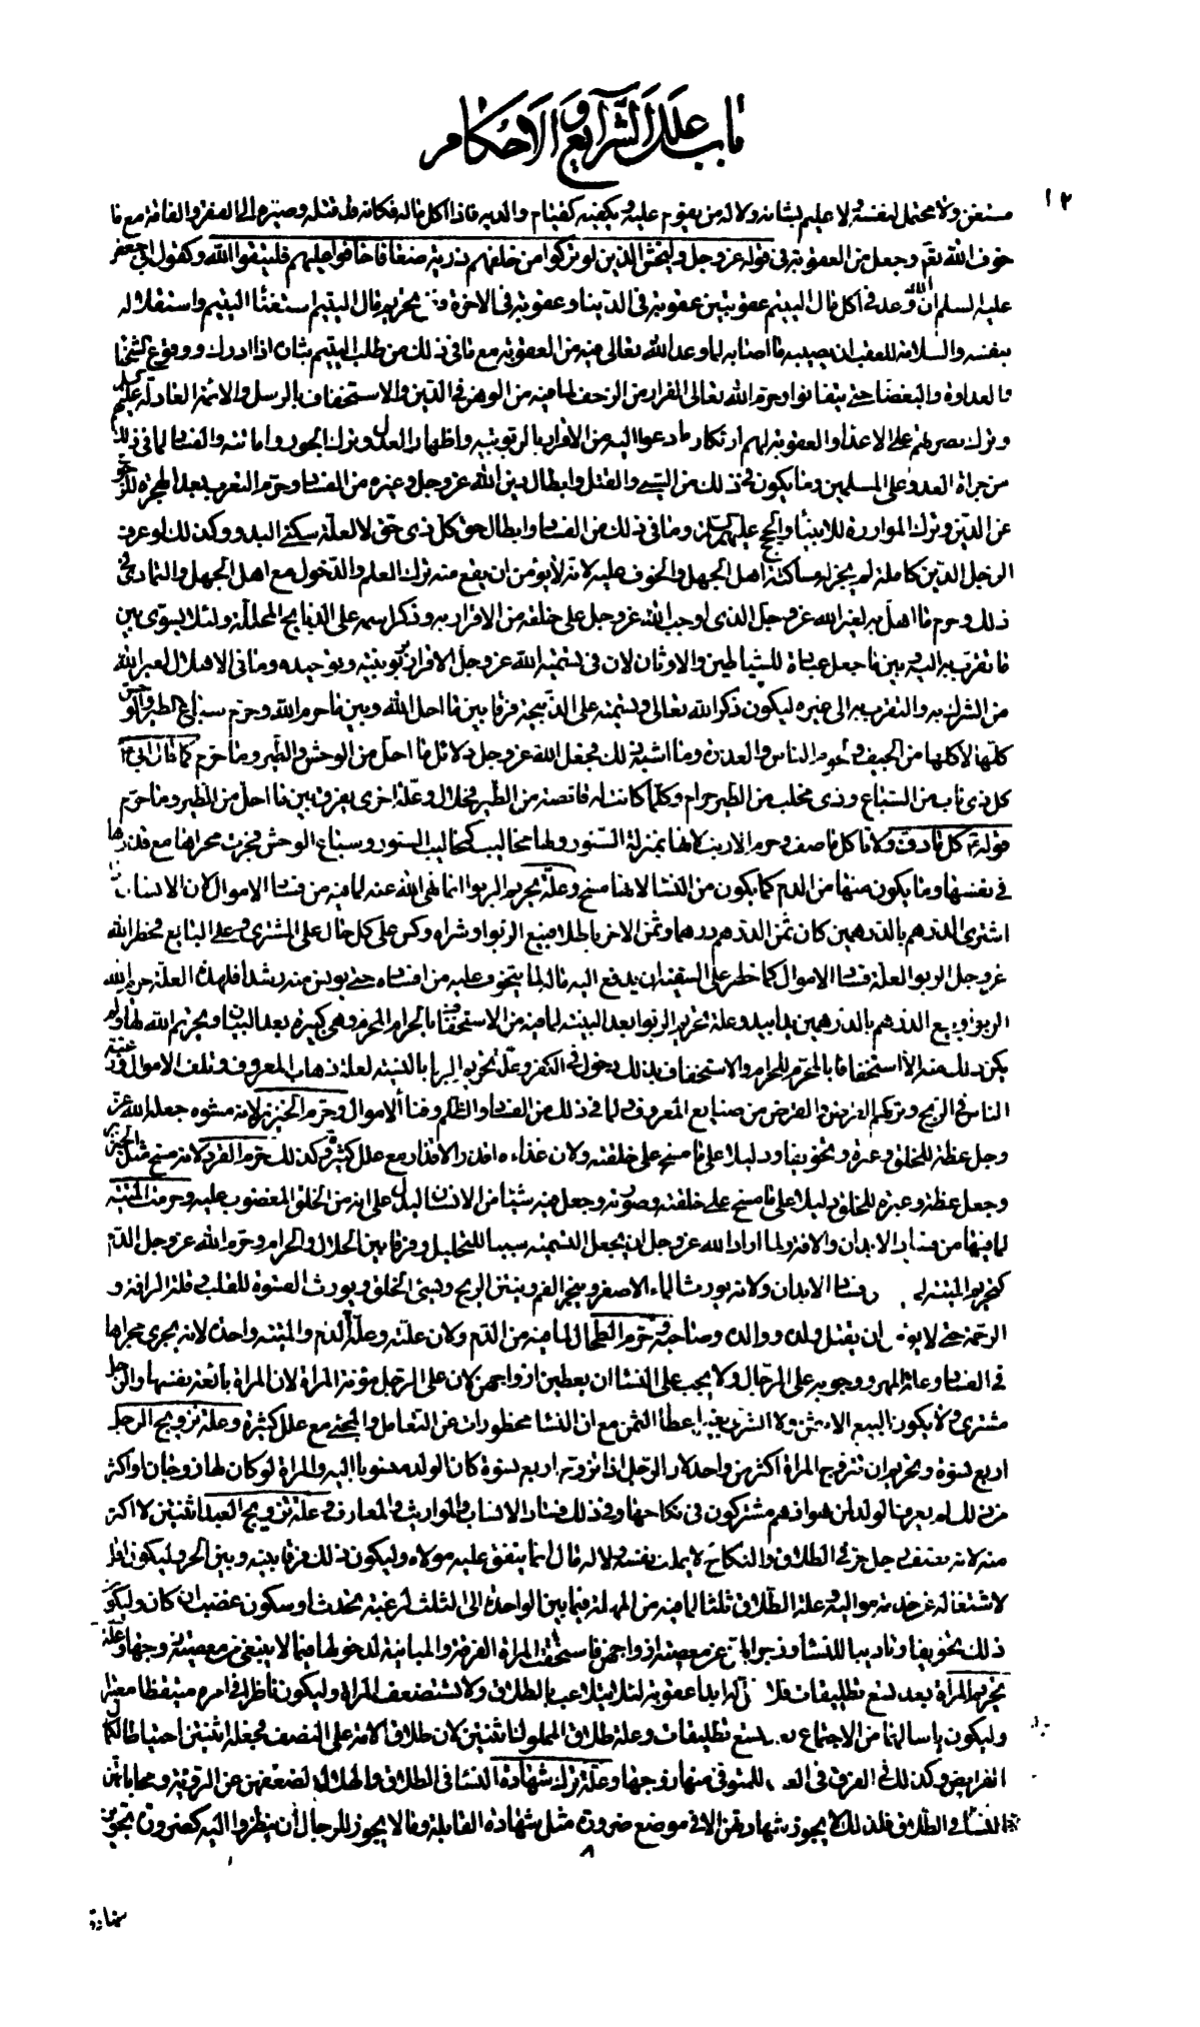 باب علل الشرايع و الاحكام
١٢
مستغن ولا محتمل لنفسه ولا عليم لشانه ولا له من يقوم عليه و يكفيه كقيام والديه فاذا اكل ماله فكانه قد قتله وصيره الى الفقر والفاقة مع ما
خوف الله تعم وجعل من العقوبة في قوله عز وجل وليخش الذين لو تركوا من خلفهم ذرية ضعافا خافوا عليهم فليتقوا الله وكقول ابي جعفر
عليه السلم ان الله وعد في اكل مال اليتيم عقوبتين عقوبة في الدنيا وعقوبة في الاخرة تحريم مال اليتيم استغناء اليتيم واستقلاله
بنفسه والسلامة للعقب ان يصيبه ما اصابه لما وعد الله تعالى فيه من العقوبة مع ما في ذلك من طلب اليتيم بثاره اذا ادرك ووقوع الشحنا
والعداوة والبغضا حتى يتفانوا وحرم الله تعالى الفرار من الزحف لما فيه من الوهن في الدين والاستخفاف بالرسل والائمة العادلة عليهم
وترك نصرتهم على الاعداء والعقوبة لهم انكار ما دعوا اليه من الاقرار بالربوبية واظهار العدل وترك الجور واماتته والفساد لما في ذلك
من جراة العدو على المسلمين وما يكون في ذلك من السبي والقتل وابطال دين الله عز وجل وغيره من الفساد وحرم التعرب بعد الهجرة للرجوع
عن الدين وترك الموازرة للانبياء والحجج عليهم السلم وما في ذلك من الفساد وابطال حق كل ذي حق لا لعلة سكنى البدو وكذلك لو عرف
الرجل الدين كاملا لم يجز له مساكنة اهل الجهل والخوف عليه لانه لا يؤمن ان يقع منه ترك العلم والدخول مع اهل الجهل والتمادي في
ذلك وحرم ما اهل به لغير الله عز وجل الذي اوجب الله عز وجل على خلقه من الاقرار به وذكر اسمه على الذبايح المحللة ولئلا يسوى بين
ما تقرب به اليه وبين ما جعل عبادة للشياطين والاوثان لان في تسمية الله عز وجل الاقرار بربوبيته وتوحيده وما في الاهلال لغير الله
من الشرك به والتقرب به الى غيره ليكون ذكر الله تعالى وتسميته على الذبيحة فرقا بين ما احل الله وبين ما حرم الله وحرم سباع الطير والوحش
كلها لاكلها من الجيف ولحوم الناس والعذرة وما اشبه ذلك فجعل الله عز وجل دلائل ما احل من الوحش والطير وما حرم كما قال ابي ع
كل ذي ناب من السباع وذي مخلب من الطير حرام وكلما كانت له قانصة من الطير فحلال وعلة اخرى يفرق بين ما احل من الطير وما حرم
قوله ع كل ما دف ولا تاكل ما صف وحرم الارنب لانها بمنزلة السنور ولها مخاليب كمخاليب السنور وسباع الوحش فجرت مجراها مع قذرها
في نفسها وما يكون منها من الدم كما يكون من النساء لانها مسخ وعلة تحريم الربوا انما نهى الله عنه لما فيه من فساد الاموال لان الانسان
اشترى الدرهم بالدرهمين كان ثمن الدرهم درهما وثمن الاخر باطلا فبيع الربوا وشراه وكس على كل حال على المشتري وعلى البايع فحظر الله
عز وجل الربو العلة فساد الاموال كما حظر على السفيه ان يدفع اليه ماله لما يتخوف عليه من افساده حتى يونس منه رشدا فلهذه العلة حرم الله
الربوا وبيع الدرهم بالدرهمين يدا بيد وعلة تحريم الربوا بعد البينة لما فيه من الاستخفاف بالحرام المحرم وهي كبيرة بعد البيان وتحريم الله لها ولم
يكن ذلك منه الا استخفافا بالمحرم للحرام والاستخفاف بذلك دخول في الكفر وعلة تحريم الربا بالنسية لعلة ذهاب المعروف وتلف الاموال ورغبة
الناس في الربح وتركهم القرض والفرض من صنايع المعروف لما في ذلك من الفساد والظلم وفناء الاموال وحرم الخنزير لانه مشوه جعله الله عز
وجل عظة للخلق وعبرة وتخويفا ودليلا على ما مسخ على خلقته ولان غذاءه اقذر الاقذار مع علل كثيرة وكذلك حرم القرد لانه مسخ مثل الخنزير
وجعل عظة وعبرة للخلق دليلا على ما مسخ على خلقته وصورته وجعل فيه شيئا من الانسان ليدل على انه من الخلق المغضوب عليه وحرمت الميتة
لما فيها من فساد الابدان والافة ولما اراد الله عز وجل ان يجعل التسمية سببا للتحليل وفرقا بين الحلال والحرام وحرم الله عز وجل الدم
كتحريم الميتة لـ فساد الابدان ولانه يورث الماء الاصفر ويبخر الفم وينتن الريح ويسيئ الخلق ويورث القسوة للقلب وقلة الرافة و
الرحمة حتى لا يؤمن ان يقتل ولده ووالده وصاحبه وحرم الطحال لما فيه من الدم وكان علته وعلة الدم والميتة واحدة لانه يجرى مجراها
في الفساد وعلة المهر ووجوبه على الرجال ولا يجب على النساء ان يعطين ازواجهن لان على الرجل مؤنة المراة لان المراة بائعة نفسها والرجل
مشتري ولا يكون البيع الا بثمن ولا الشرى بغير اعطاء الثمن مع ان النساء محظورات عن التعامل والمجئ مع علل كثيرة وعلة تزويج الرجل
اربع نسوة وتحريم ان تتزوج المراة اكثر من واحد لان الرجل اذا تزوج اربع نسوة كان الولد منسوبا اليه والمراة لو كان لها زوجان او اكثر
من ذلك لم يعرف الولد لمن هو اذ هم مشتركون في نكاحها وفي ذلك فساد الانساب والمواريث والمعارف وعلة تزويج العبد اثنتين لا اكثر
منه لانه نصف رجل حر في الطلاق والنكاح لا يملك نفسه ولا له مال انما ينفق عليه مولاه وليكون ذلك فرقا بينه وبين الحر وليكون اقل
لاشتغاله عن خدمة مواليه وعلة الطلاق ثلثا لما فيه من المهلة فيما بين الواحدة الى الثلث لرغبة تحدث او سكون غضب ان كان وليكون
ذلك تخويفا وتاديبا للنساء وزجرا لهن عن معصية ازواجهن فاستحقت المراة الفرقة والمباينة لدخولها فيما لا ينبغي من معصية زوجها وعلة
تحريم المراة بعد تسع تطليقات فلا تحل له ابدا عقوبة لئلا يتلاعب بالطلاق ولا تستضعف المراة وليكون ناظرا في امره متيقظا معتبرا
وليكون ياسا لهما من الاجتماع بعد تسع تطليقات وعلة طلاق المملوك اثنتين لان طلاق الامة على النصف فجعله اثنتين احتياطا لكمال
الفرايض وكذلك في الفرق في العدة للمتوفى عنها زوجها وعلة ترك شهادة النساء في الطلاق والهلال لضعفهن عن الرؤية ومحاباتهن
النساء في الطلاق فلذلك لا يجوز شهادتهن الا في موضع ضرورة مثل شهادة القابلة وما لا يجوز للرجال ان ينظروا اليه كضرورة تجويز